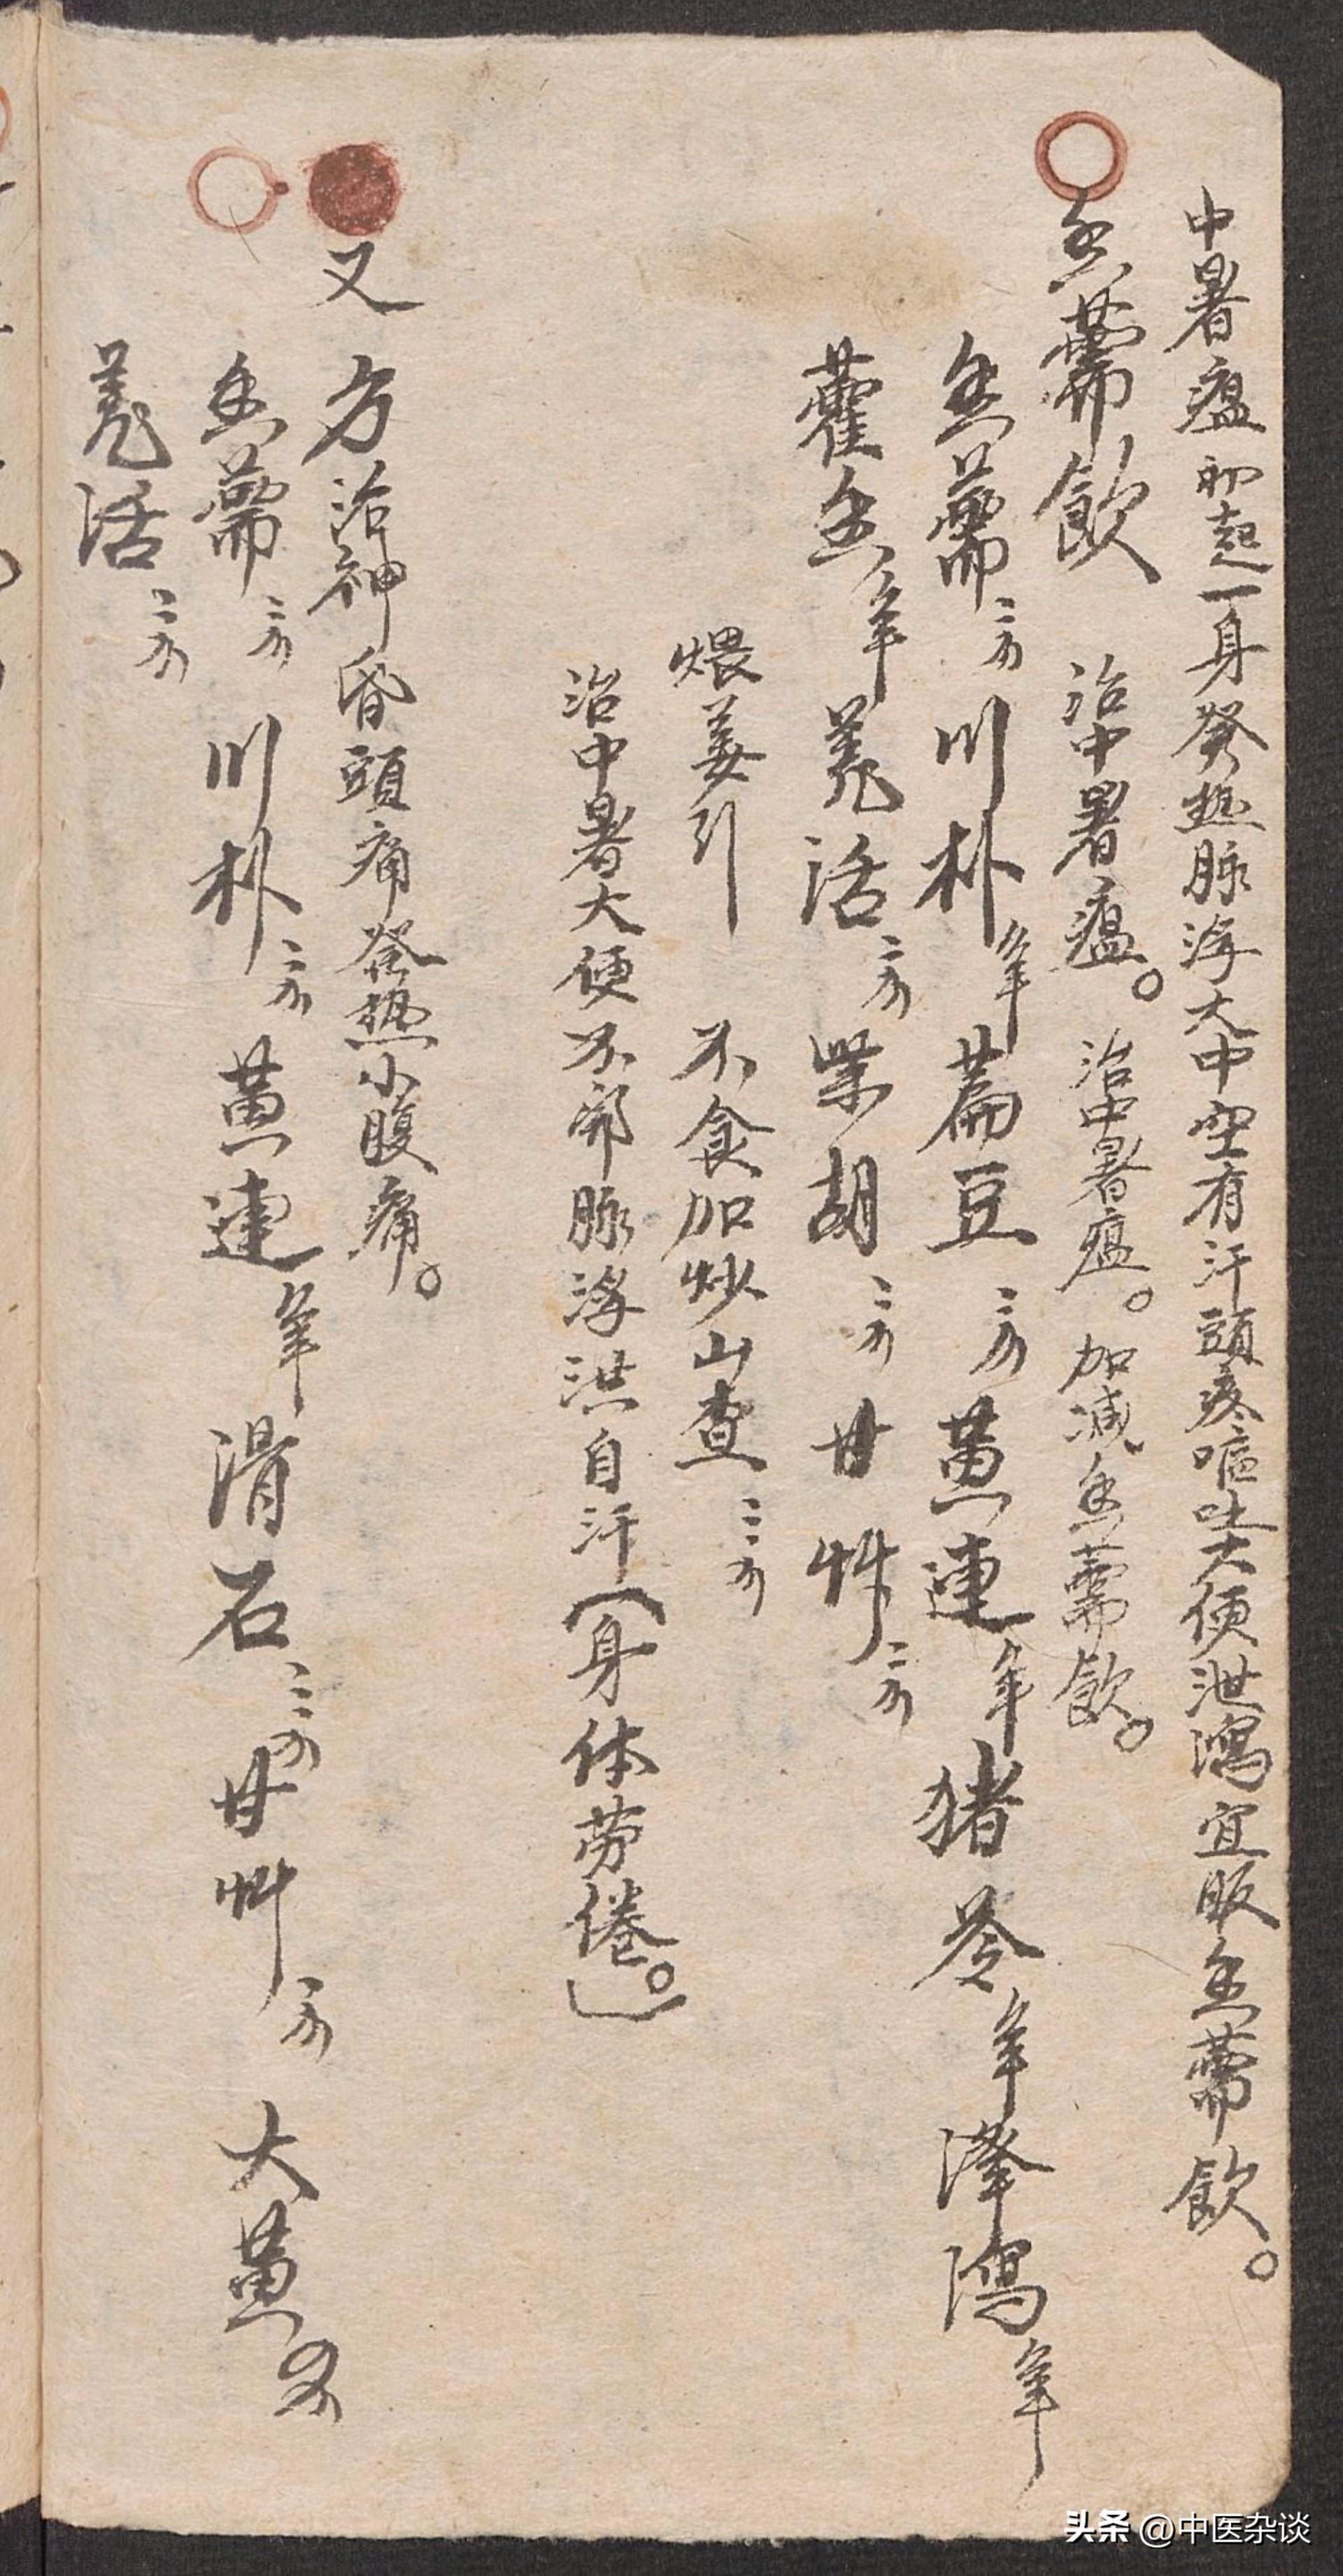 中暑瘟初起一身發热脉浮大中空有汗頭疼嘔吐大便泄瀉宜服香薷飲。
香薷飲 治中暑瘟。 治中暑瘟。加减香薷飲。
香薷二分 川朴 萹豆三分 黄連 猪苓 澤瀉
藿香 羌活二分 柴胡二分 甘艸二分
煨姜引 不食加炒山查三分
治中暑大便不 脉浮洪自汗(身体劳倦。)
又方治神昏頭痛發热小腹痛。
香薷二分 川朴二分 黄連 滑石三分 甘艸二分 大黄
羌活二分
头条 @中医杂谈